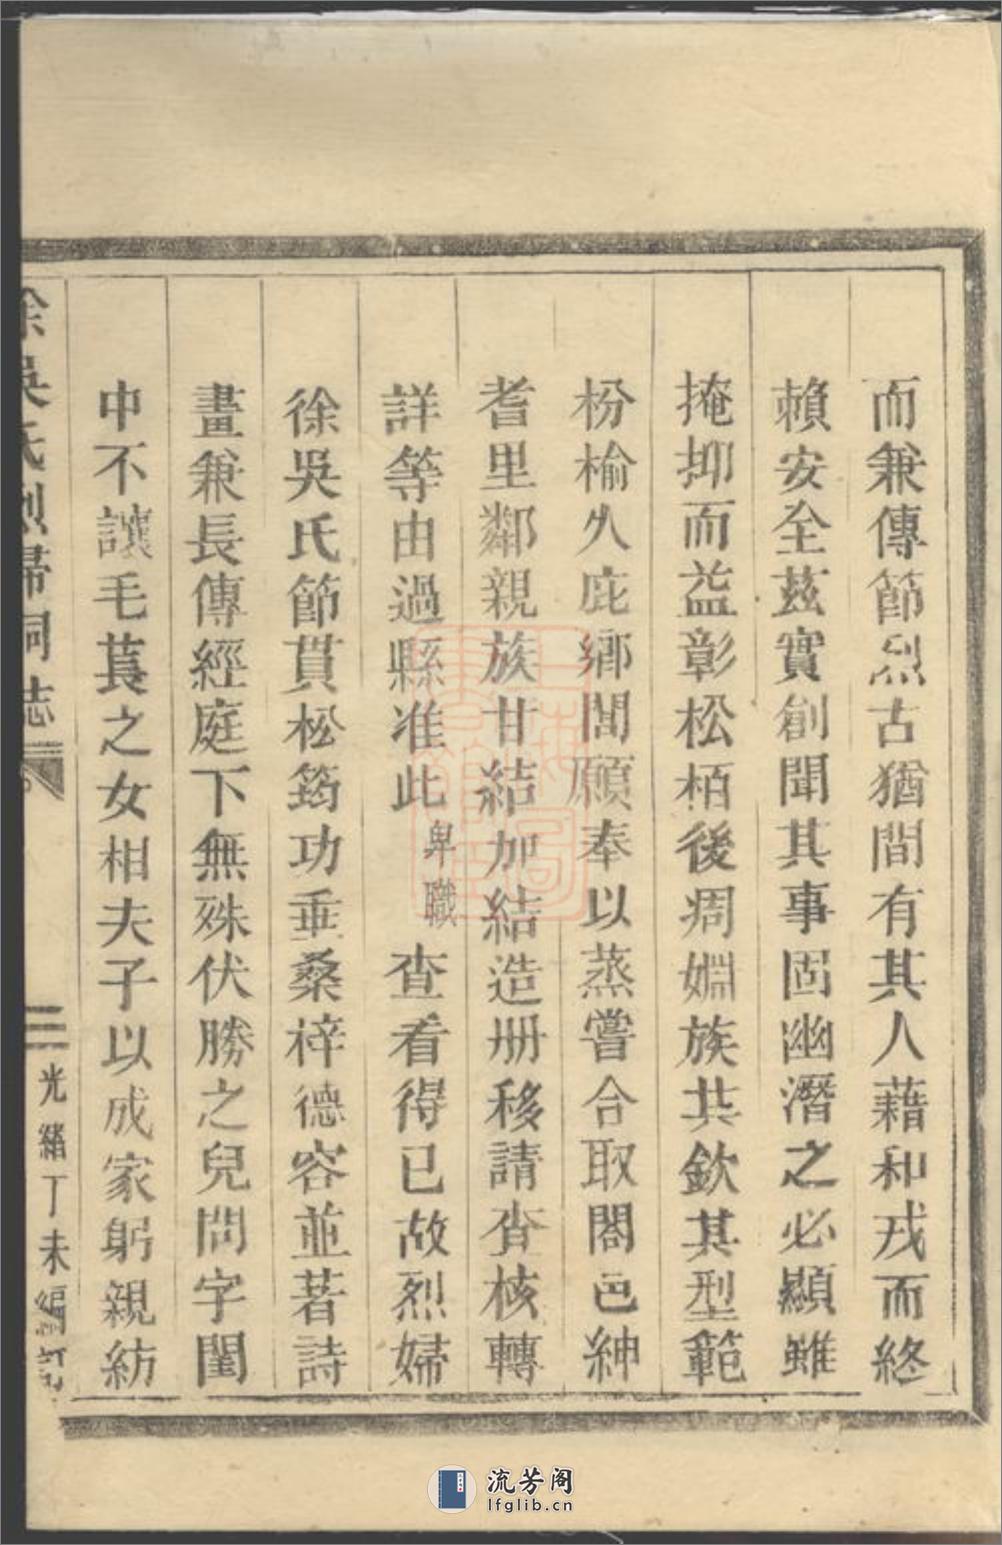 而兼傳節烈古猶間有其人藉和戎而終
賴安全茲實創聞其事固幽潛之必顯雖
掩抑而益彰松栢後凋婣族共欽其型範
枌榆久庇鄉閭願奉以蒸嘗合取閤邑紳
耆里鄰親族甘結加結造册移請查核轉
詳等由過縣准此卑職查看得已故烈婦
徐吳氏節貫松筠功垂桑梓德容並著詩
畫兼長傳經庭下無殊伏勝之兒問字閨
中不讓毛萇之女相夫子以成家躬親紡
徐吳氏烈婦祠志
二
光緒丁未編訂
流芳阁
lfglib.cn